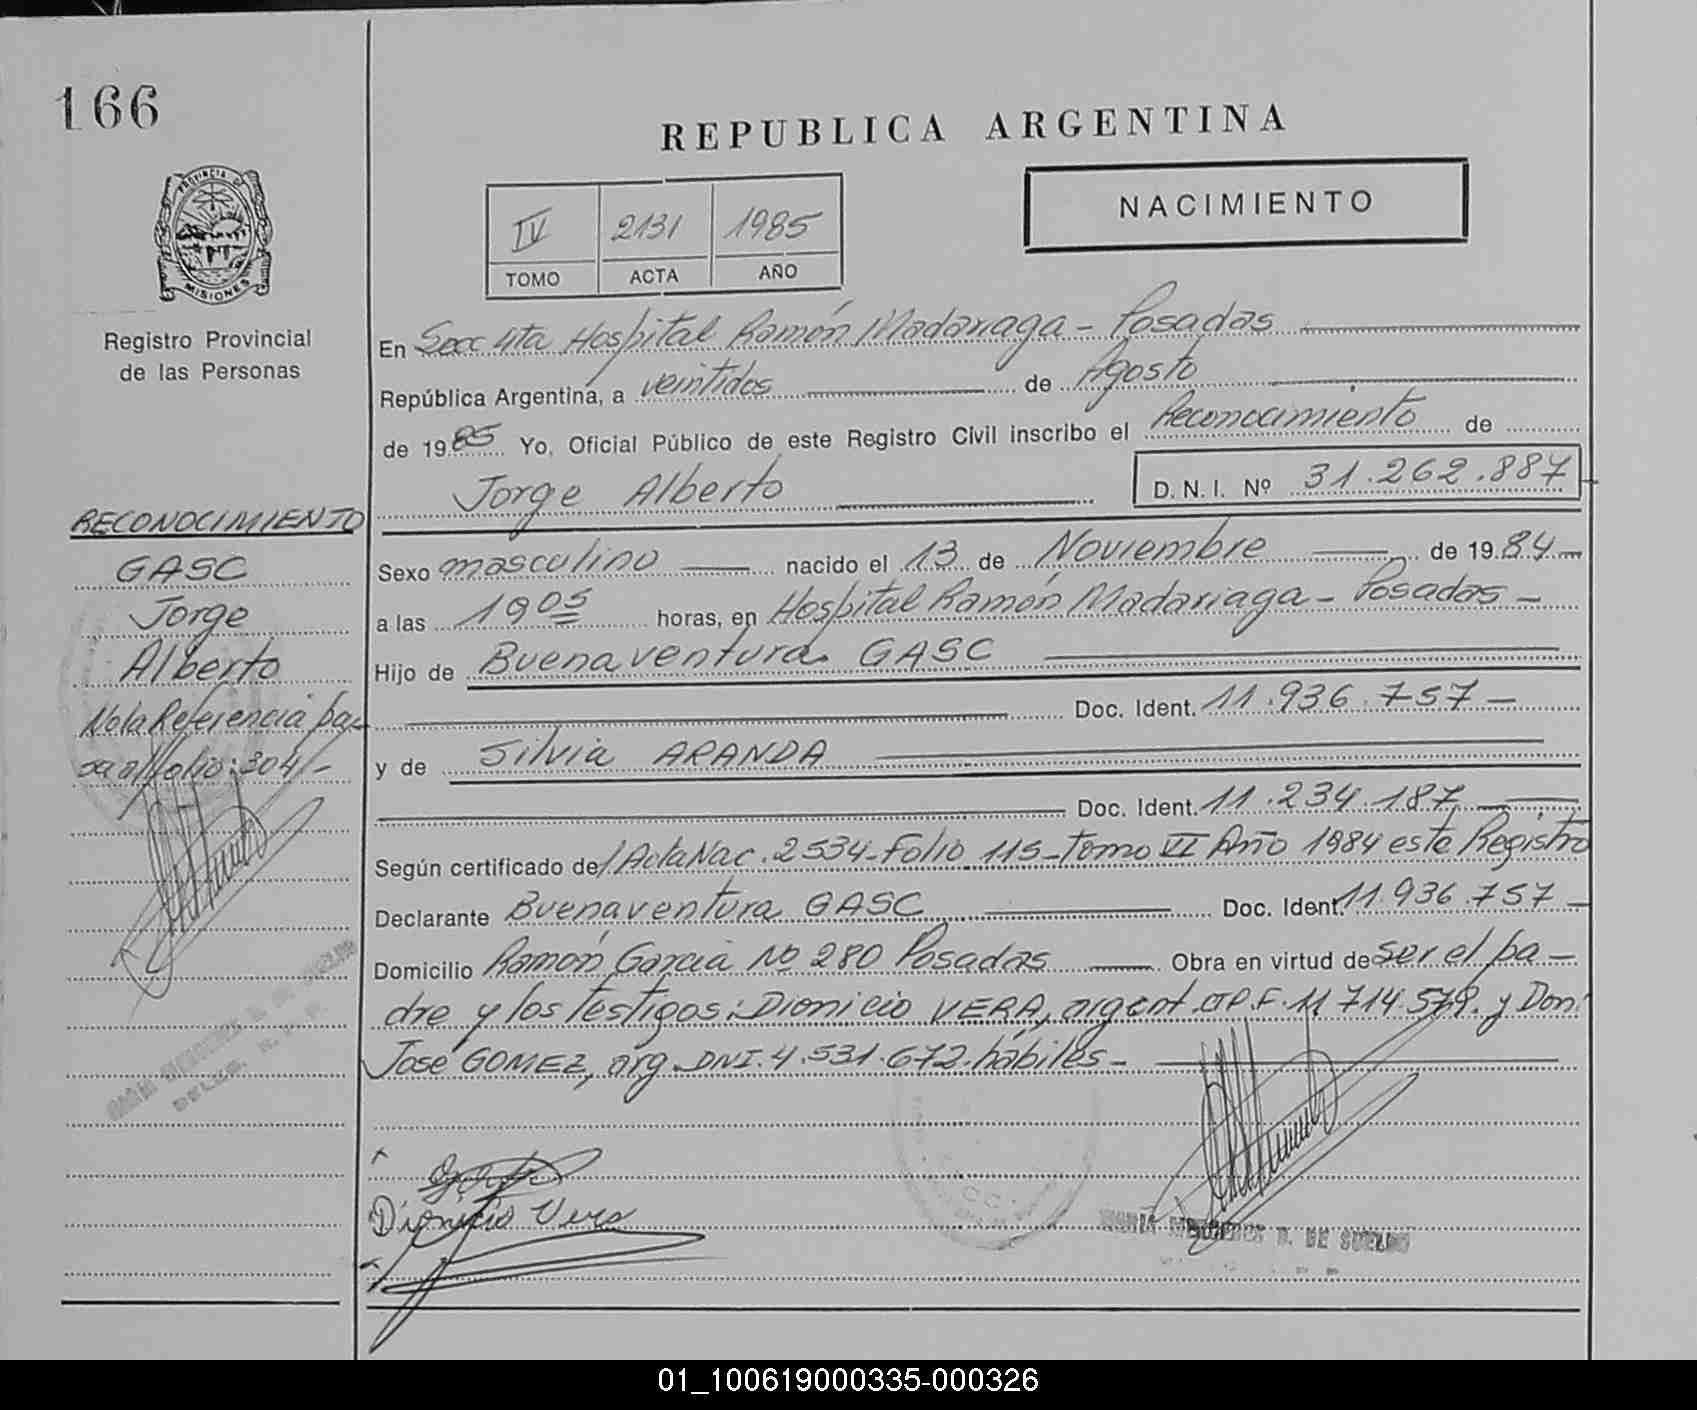 166
REPUBLICA ARGENTINA
NACIMIENTO
IV 2131 1985
TOMO ACTA AÑO
PROVINCIA DE
MISIONES
Registro Provincial
de las Personas
En Secc 4ta Hospital Ramón Madariaga - Posadas
República Argentina, a veintidos de Agosto
de 1985 Yo, Oficial Público de este Registro Civil inscribo el Reconocimiento de
Jorge Alberto D. N. I. Nº 31.262.887
RECONOCIMIENTO
GASC
Jorge
Alberto
Nota Referencia pa-
sa al folio: 304 -
Sexo masculino nacido el 13 de Noviembre de 1984
a las 19 05 horas, en Hospital Ramón Madariaga - Posadas -
Hijo de Buenaventura GASC
Doc. Ident. 11.936.757 -
y de Silvia ARANDA
Doc. Ident. 11.234.187
Según certificado de/Acta Nac. 2534 - Folio 115 - Tomo VI Año 1984 este Registro
Declarante Buenaventura GASC Doc. Ident. 11.936.757 -
Domicilio Ramón Garcia Nº 280 Posadas Obra en virtud de ser el pa-
dre y los testigos: Dionicio VERA, argent. C.I.P.F. 11 714.579. y Don:
José GOMEZ, arg. DNI. 4.531.672. hábiles -
Dionicio Vera
MARIA MERCEDES D. DE SUELDO
01_100619000335-000326